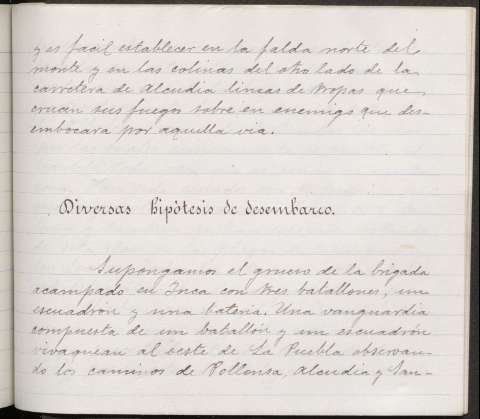 y es facil establecer en la falda norte del
monte y en las colinas del otro lado de la
carretera de Alcudia lineas de tropas que
crucen sus fuegos sobre en enemigo que des-
embocara por aquella via.
Diversas hipòtesis de desembarco.
Supongamos el grueso de la brigada
acampado en Inca con tres batallones, un
escuadrón y una bateria. Una vanguardia
compuesta de un batallón y un escuadrón
vivaquean al oeste de La Puebla observan-
do los caminos de Pollensa, Alcudia y San-